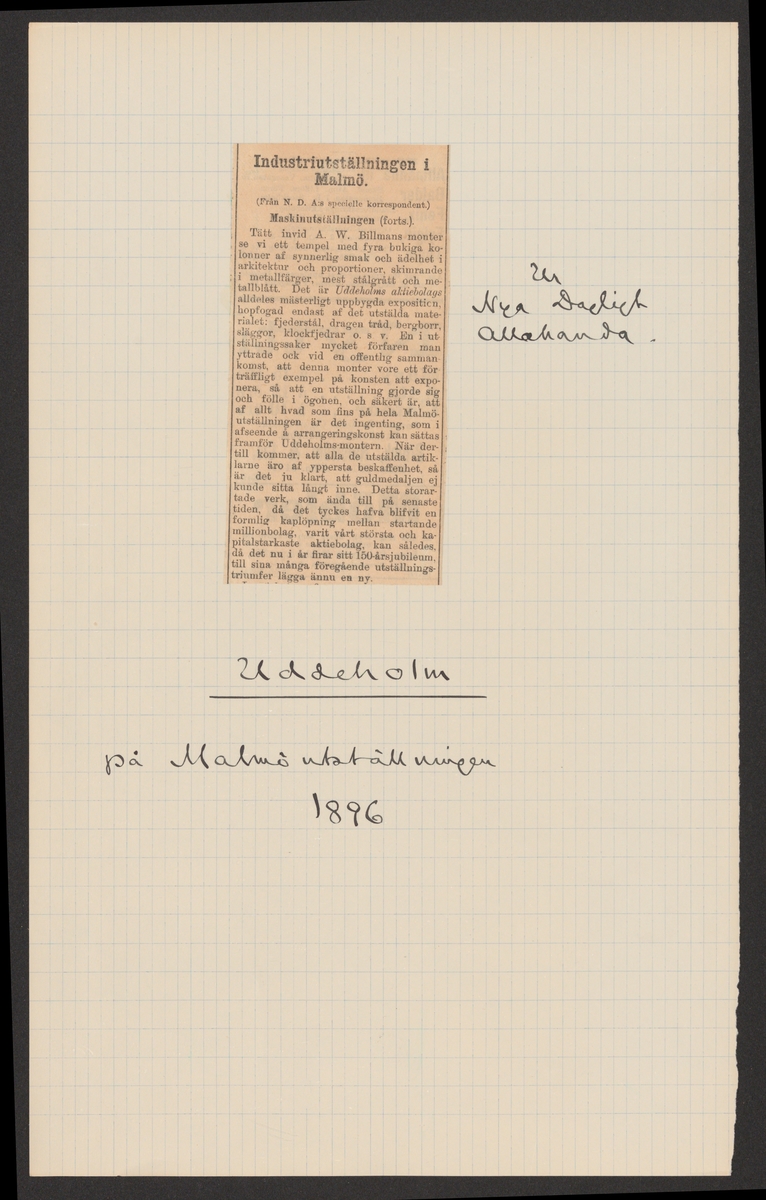 Industriutställningen i
Malmö.
(Från N. D. A:s specielle korrespondent.)
Maskinutställningen (forts.).
Tätt invid A. W. Billmans monter
se vi ett tempel med fyra bukiga ko-
lonner af synnerlig smak och ädelhet i
arkitektur och proportioner, skimrande
i metallfärger, mest stålgrått och me-
tallblått. Det är Uddeholms aktiebolags
alldeles mästerligt uppbygda exposition,
hopfogad endast af det utstälda mate-
rialet: fjederstål, dragen tråd, bergborr,
släggor, klockfjedrar o. s v. En i ut
ställningssaker mycket förfaren man
yttrade ock vid en offentlig samman-
komst, att denna monter vore ett för
träffligt exempel på konsten att expo-
nera, så att en utställning gjorde sig
och fölle i ögonen, och säkert är, att
af allt hvad som fins på hela Malmö-
utställningen är det ingenting, som i
afseende å arrangeringskonst kan sättas
framför Uddeholms-montern. När der-
till kommer, att alla de utstälda artik-
larne äro af yppersta beskaffenhet, så
är det ju klart, att guldmedaljen ej
kunde sitta långt inne. Detta storar-
tade verk, som ända till på senaste
tiden, då det tyckes hafva blifvit en
formlig kaplöpning mellan startande
millionbolag, varit vårt största och ka-
pitalstarkaste aktiebolag, kan således,
då det nu i år firar sitt 150-årsjubileum,
till sina många föregående utställnings-
triumfer lägga ännu en ny.
Ur
Nya Dagligt
Allahanda.
Uddeholm
på Malmöutställningen
1896